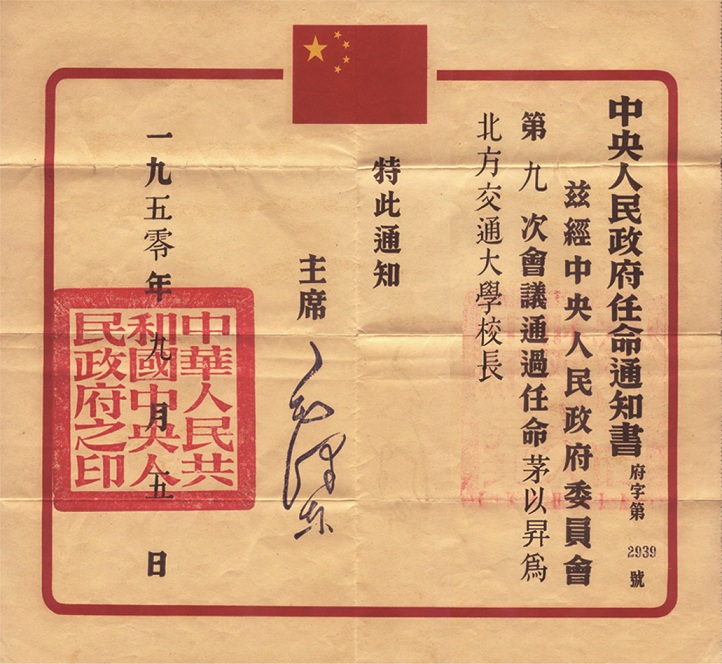 中央人民政府任命通知書
府字第2939號
茲經中央人民政府委員會
第九次會議通過任命茅以昇爲
北方交通大學校長
特此通知
主席 毛澤東
一九五零年九月五日
中華人民共
和國中央人
民政府之印